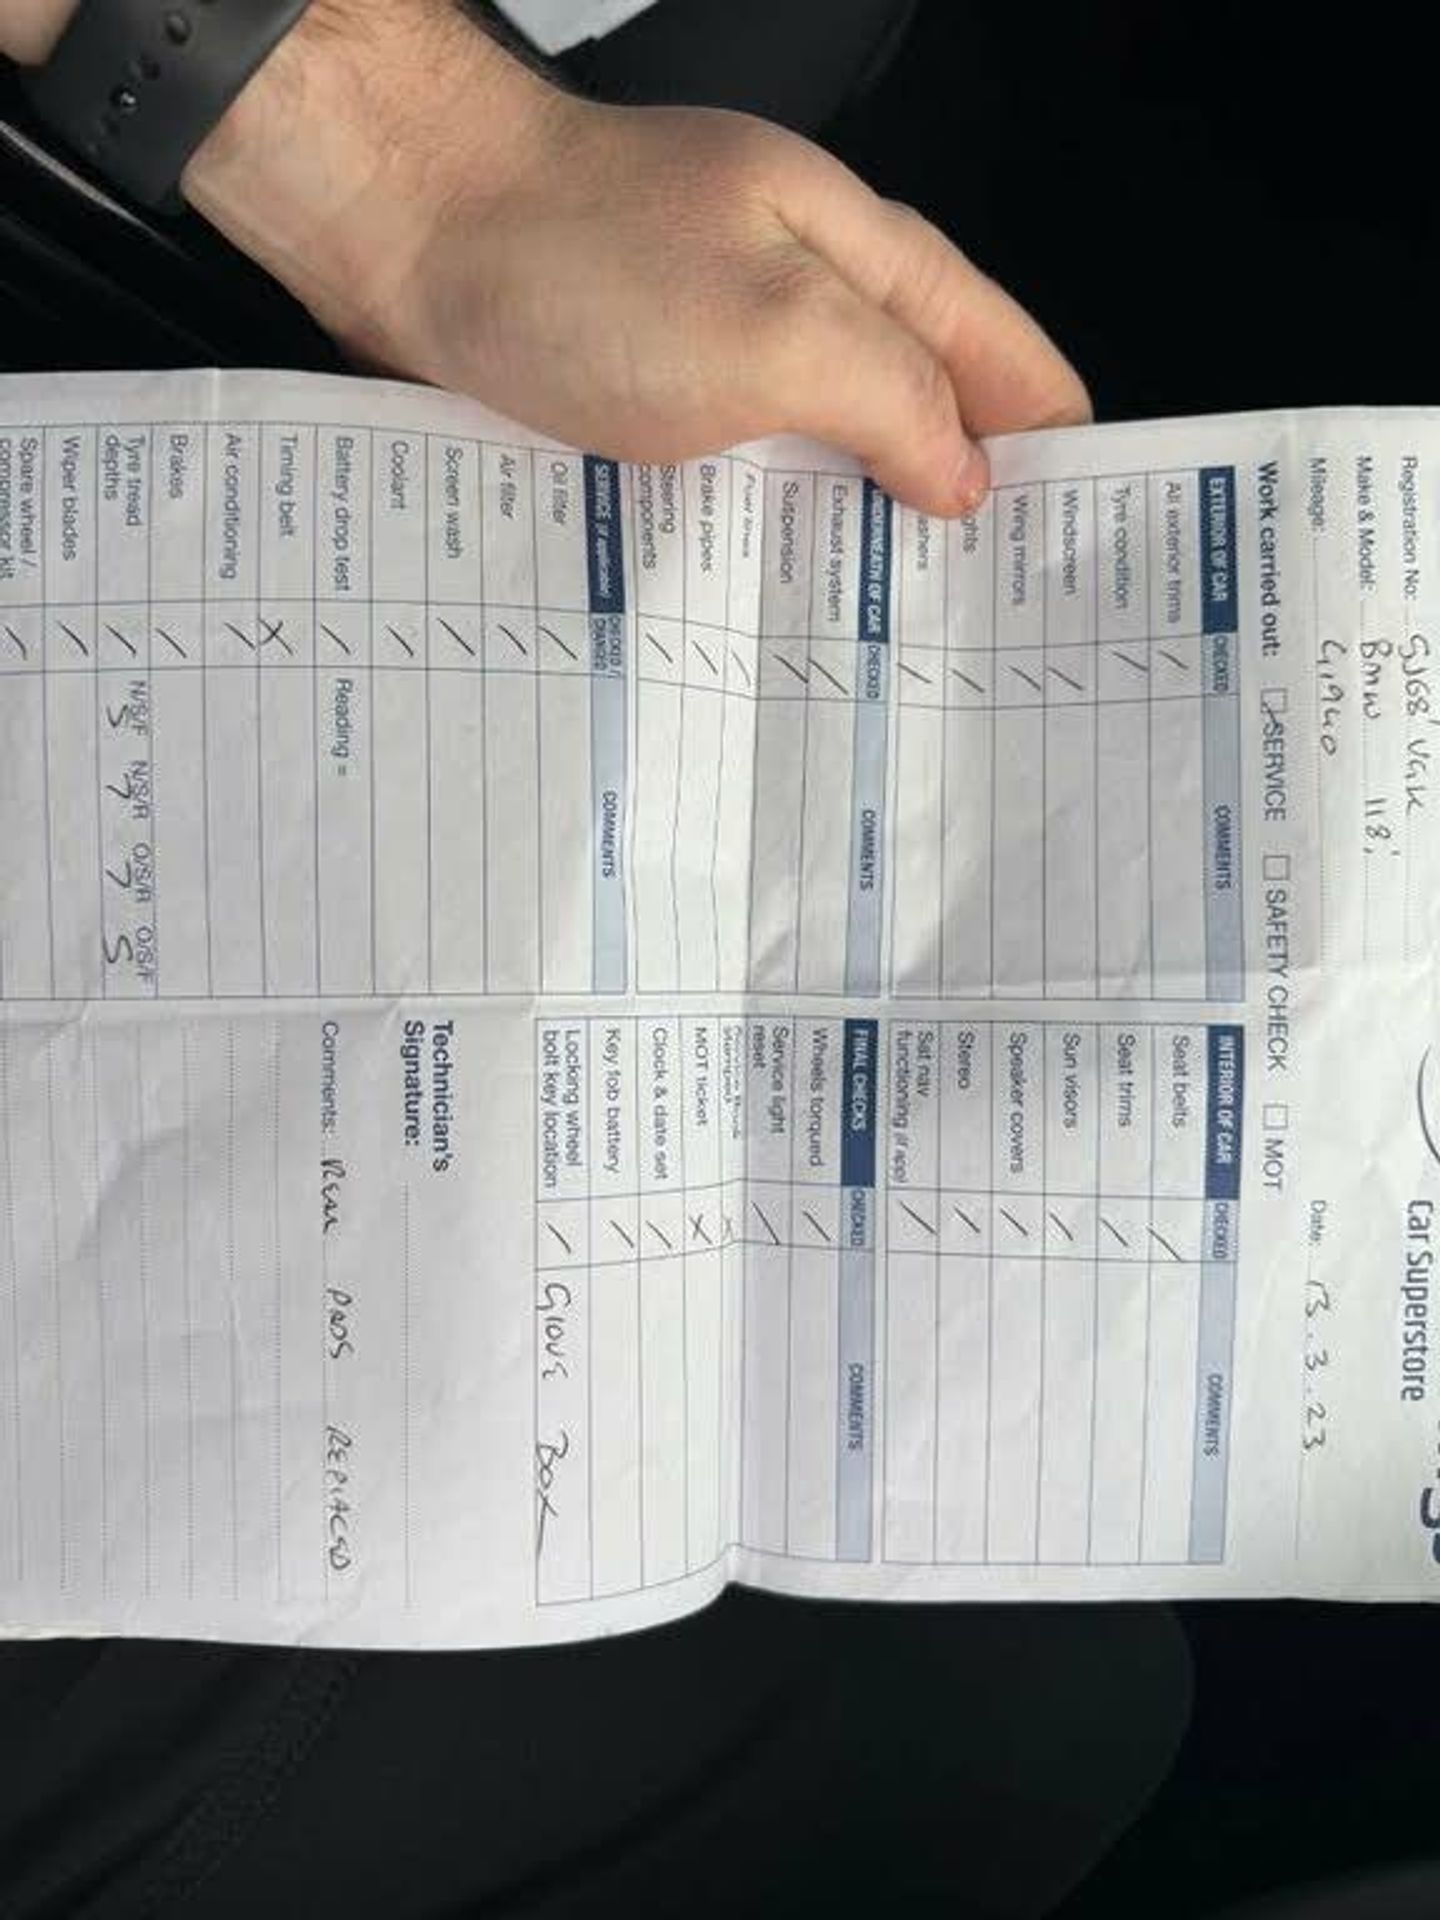 Car Superstore
Registration No: GJ68 VGK
Make & Model: BMW 118i
Mileage: Date: 13.3.23
Work carried out: SERVICE SAFETY CHECK MOT
EXTERIOR OF CAR CHECKED COMMENTS
All exterior trims
Tyre condition
Windscreen
Wing mirrors
ghts
ashers
NEATH OF CAR CHECKED COMMENTS
Exhaust system
Suspension
Brake pipes
Steering
components
SERVICE if applicable CHECKED / CHANGED COMMENTS
Oil filter
Air filter
Screen wash
Coolant
Battery drop test Reading =
Timing belt X
Air conditioning
Brakes
Tyre tread
depths
N/S/F N/S/R O/S/R O/S/F
5 7 7 5
Wiper blades
Spare wheel /
compressor kit
INTERIOR OF CAR CHECKED COMMENTS
Seat belts
Seat trims
Sun visors
Speaker covers
Stereo
Sat nav
functioning (if app)
FINAL CHECKS CHECKED COMMENTS
Wheels torqued
Service light
reset
MOT ticket X
Clock & date set
Key fob battery
Locking wheel
bolt key location
GLOVE BOX
Technician's
Signature:
Comments: REAR PADS REPLACED